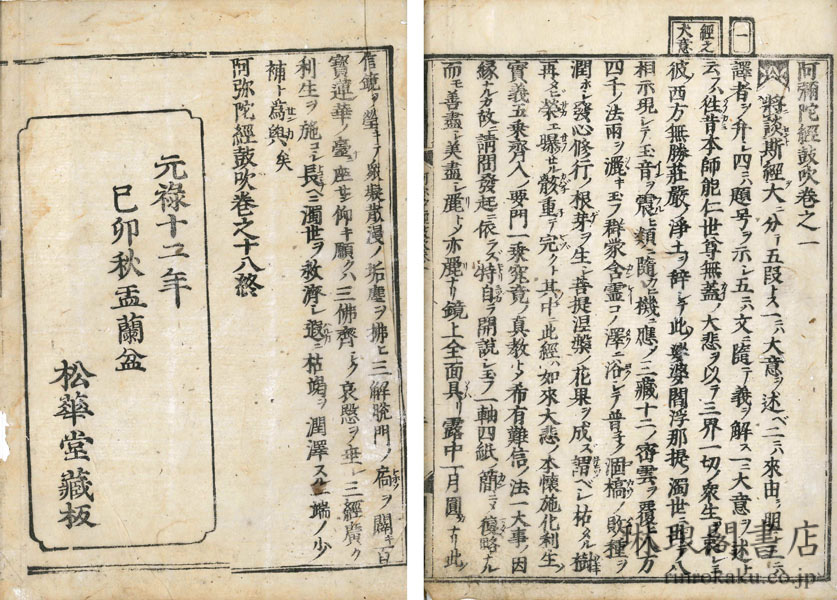 一
經之
大意
阿彌陀經鼓吹卷之一
將談斯經大ニ分テ五段トス一ニハ大意ヲ述ベ二ニハ來由ヲ明三ニハ
譯者ヲ弁シ四ニハ題号ヲ示シ五ニハ文ニ隨テ義ヲ解ス一ニ大意ヲ述トハ
云ク徃昔本師能仁世尊無蓋ノ大悲ヲ以テ三界一切ノ衆生ヲ哀ミ
彼西方無勝莊嚴ノ淨土ヲ辞シテ此娑婆閻浮那提ノ濁世ニ再ヒ八
相示現シテ玉音ヲ震ヒ類ニ隨ヒ機ニ應メ三藏十二ノ密雲ヲ覆ヒ八万
四千ノ法雨ヲ灑キ玉フ群蒙含靈コノ澤ニ浴シテ普ク涸槁ノ敗種ヲ
潤ホシ發心修行ノ根芽ヲ生シ菩提涅槃ノ花果ヲ成ス謂ベシ枯タル樹
再ヒ榮エ曝セル骸重テ完クト其中ニ此經ハ如來大悲ノ本懷施化利生ノ
實義五乘齊入ノ要門一乘究竟ノ真教ナリ希有難信ノ法一大事ノ因
縁ナルカ故ニ請問發起ニ依ラズ特自ラ開説シ玉フ一軸四紙ノ簡ニメ略ナル
而モ善盡シ美盡シ麗トメ亦麗ナリ鏡上全面具リ露中一月圓カナリ此
信鏡ヲ瑩キテノ散漫ノ垢塵ヲ拂ヒ三解脱門ノ扃ヲ開キ百
寶蓮華ノ臺ニ座セン仰キ願クハ三佛齊シク哀愍ヲ垂レ三經廣ク
利生ヲ施コシ長ヘニ濁世ヲ救濟シ遐ニ枯竭ヲ潤澤スル一端ノ少
補ト為與矣
阿弥陀經鼓吹巻之十八終
元禄十二年
己卯秋盂蘭盆
松華堂藏板
琳琅閣書店
rinrokaku.co.jp